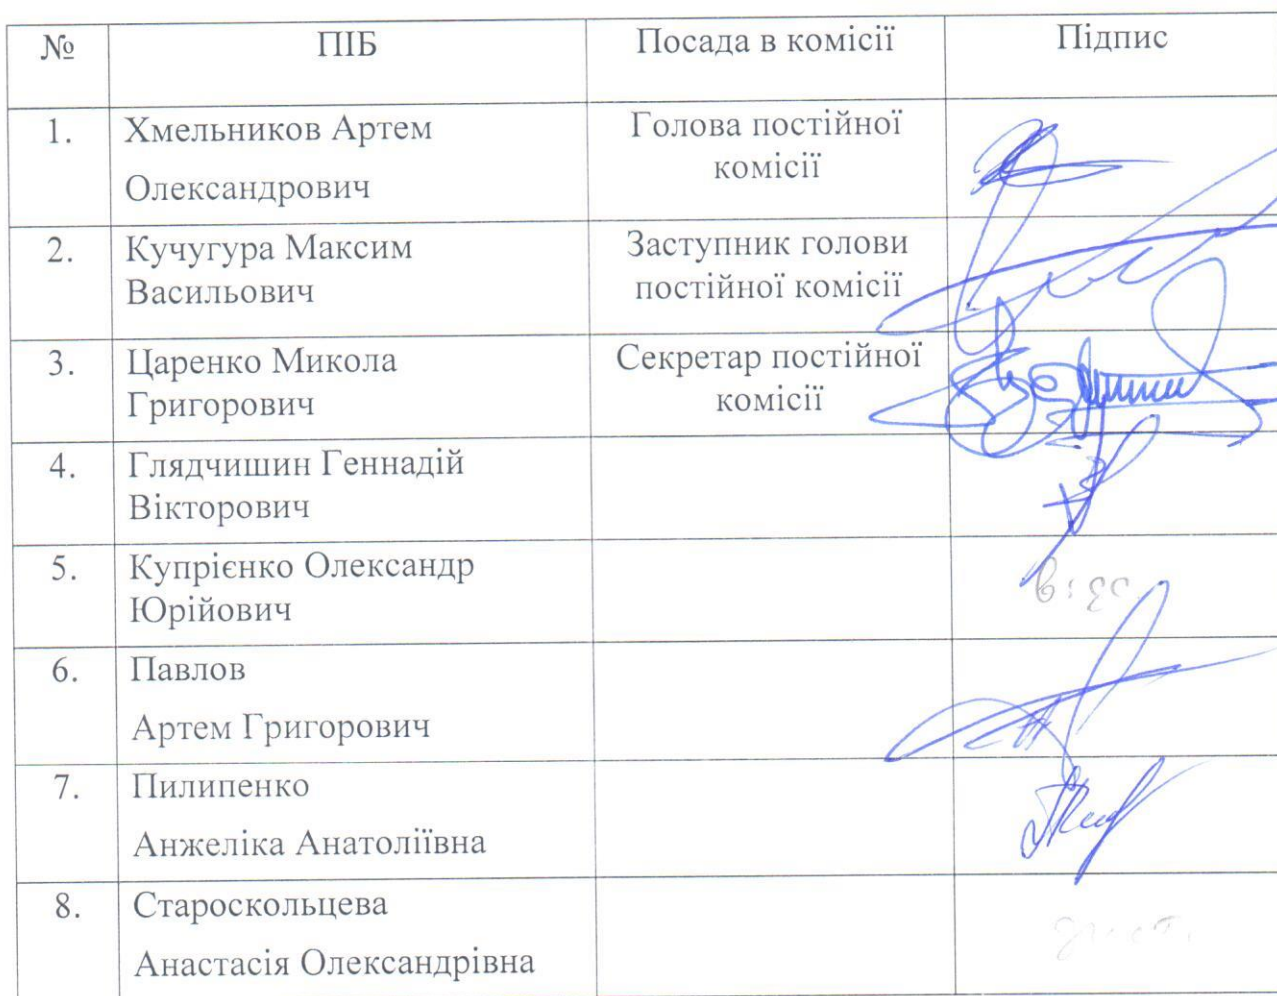 № ПІБ Посада в комісії Підпис
1. Хмельников Артем Голова постійної
Олександрович комісії
2. Кучугура Максим Заступник голови
Васильович постійної комісії
3. Царенко Микола Секретар постійної
Григорович комісії
4. Глядчишин Геннадій
Вікторович
5. Купрієнко Олександр
Юрійович
6. Павлов
Артем Григорович
7. Пилипенко
Анжеліка Анатоліївна
8. Староскольцева
Анастасія Олександрівна